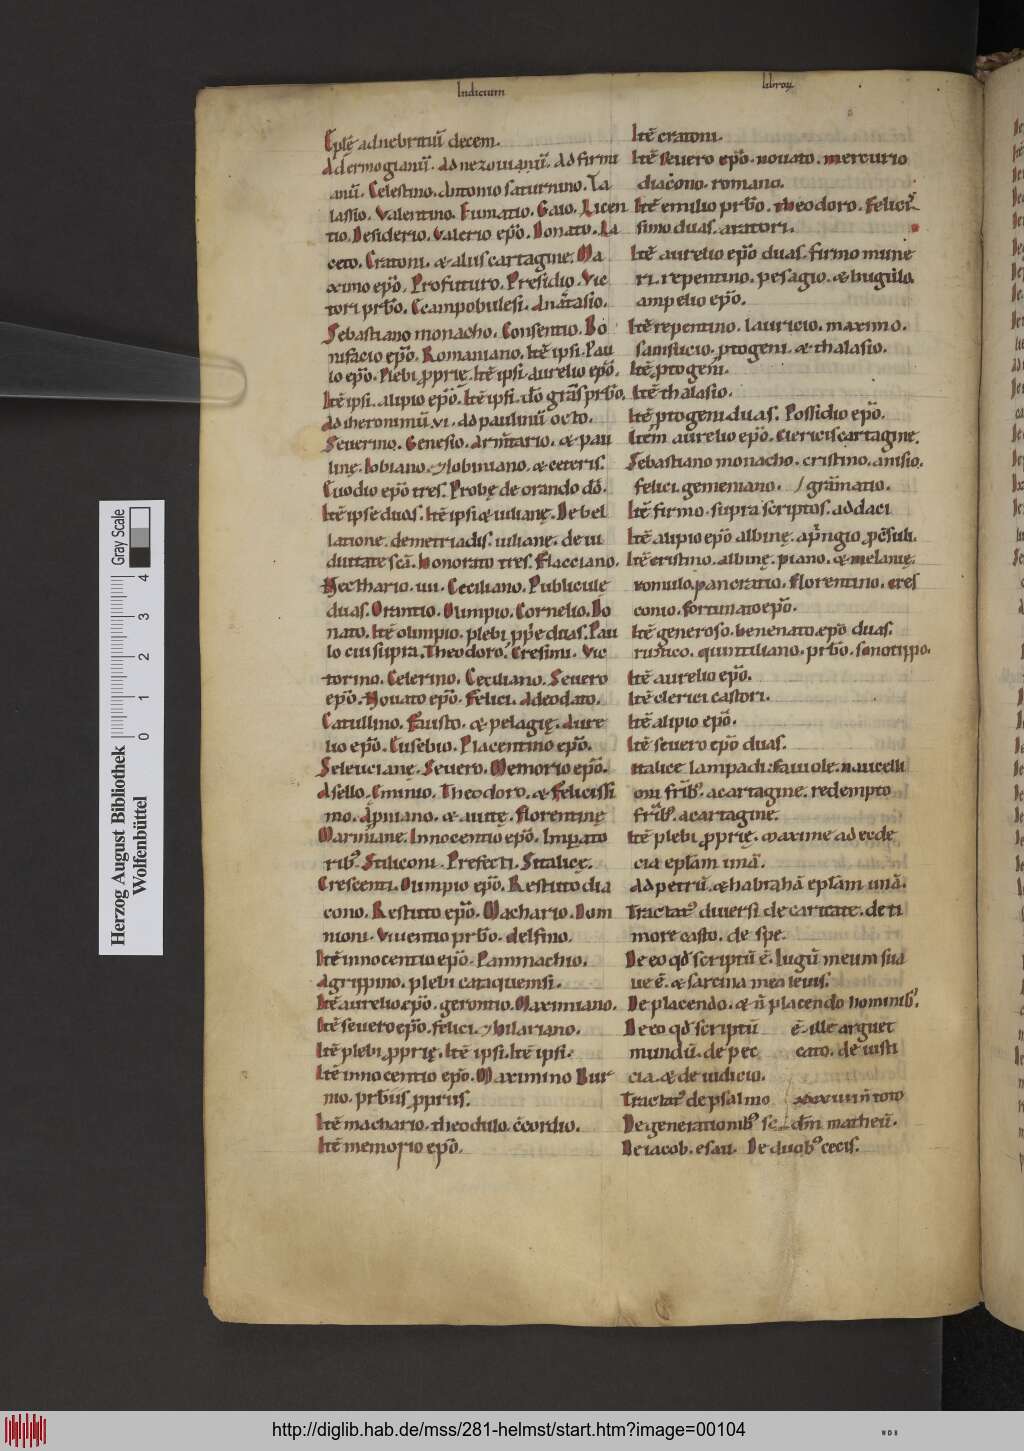 Indicium
librorum
Eple ad nebritiu decem.
Ad ermogianu. ad nezouianu. ad firmi
anu. Celestino. antonio saturnino. Ta
lassio. Valentino. Eumatio. Gaio. Licen
tio. Desiderio. Valerio epo. Donato. La
ceto. Cratoni. & aliis cartagine. Ma
ximo epo. Profuturo. Presidio. Vic
tori prbo. Ccampobulesi. Anatasio.
Sebastiano monacho. Consentio. Bo
nifacio epo. Romaniano. Ite ipsi. Pau
lo epo. Plebi pprię. Ite ipsi. aurelio epo.
Ite ipsi. alipio epo. Ite ipsi. do gras prbo.
Ad iheronimu. vi. ad paulinu octo.
Seuerino. Genesio. Armtario. & pau
linę. Iobiano. & Iobiniano. & ceteris.
Euodio epo tres. Probę de orando do.
Ite ipse duas. Ite ipsi & iulianę. De bel
latione. demetriadis. iulianę. de ui
duitate sca. honorato tres. Flacciano.
Necthario. iiii. Ceciliano. Publicule
duas. Orantio. Olimpio. Cornelio. Do
nato. Ite olimpio. plebi ppe duas. Pau
lo cui supra. Theodoro. Cresimi. Vic
torino. Celerino. Ceciliano. Seuero
epo. Nouato epo. Felici. Adeodato.
Catullino. Fausto. & pelagię. Aure
lio epo. Eusebio. Placentino epo.
Seleucianę. Seuero. Memorio epo.
Asello. Eminio. Theodoro. & Felicissi
mo. Apiniano. & auitę. Florentinę
Marmiane. Innocentio epo. Impato
rib; Stiliconi. Prefecti. S italicę.
Crescenti. Olimpio epo. Restituto dia
cono. Restituto epo. Machario. Dom
nioni. Viuentio prbo. delfino.
Ite innocentio epo. Pammachio.
Agrippino. plebi cataquemsi.
Ite aurelio epo. gerontio. Maximiano.
Ite seuero epo. felici. & hilariano.
Ite plebi pprię. Ite ipsi. Ite ipsi.
Ite innocentio epo. Maximino Bur
no. prbiis ppriis.
Ite machario. theodulo. ccordio.
Ite memorio epo.
Ite cratoni.
Ite seuero epo. nouato. mercurio
diacono. romano.
Ite emilio prbo. theodoro. Felicis
simo duas. aratori.
Ite aurelio epo duas. firmo mune
ri. repentino. pesagio. & bugulo.
ampelio epo.
Ite repentino. lauricio. maximo.
sansucio. ptogeni. & thalasio.
Ite ptogeni.
Ite thalasio.
Ite ptogeni duas. Possidio epo.
Item aurelio epo. Clericis cartagine.
Sebastiano monacho. cristino. anisio.
felici. gemeniano. / gramatio.
Ite firmo. supra scriptos. addaci
Ite alipio epo albinę. apngio pcsuli.
Ite cristino. albinę. piano. & melanię.
romulo. pancratio. florentino. cres
conio. fortunato epo.
Ite generoso. benenato. epo duas.
rustico. quintiliano. prbo. senotippo.
Ite aurelio epo.
Ite clerici castori.
Ite alipio epo.
Ite seuero epo duas.
Italice lampadi. fauiole. naucelli
oni frib; a cartagine. redempto
frib; a cartagine.
Ite plebi pprię. maxime ad ecde
cia eplam una.
Ad petru. & habraha eplam una.
Tractat; diuersi de caritate. de ti
more casto. de spe.
De eo qd scriptu e. Iugu meum sua
ue e. & sarcina mea leuis.
De placendo. & n placendo hominib;
De eo qd scriptu e. ille arguet
mundu. de peccato. de iusti
cia. & de iudicio.
Tractat; de psalmo xxxviiii toto
De generationib; scdm matheu.
De iacob. esau. De duob; cecis.
Herzog August Bibliothek
Wolfenbüttel
0 1 2 3 4
Gray Scale
http://diglib.hab.de/mss/281-helmst/start.htm?image=00104
WDB